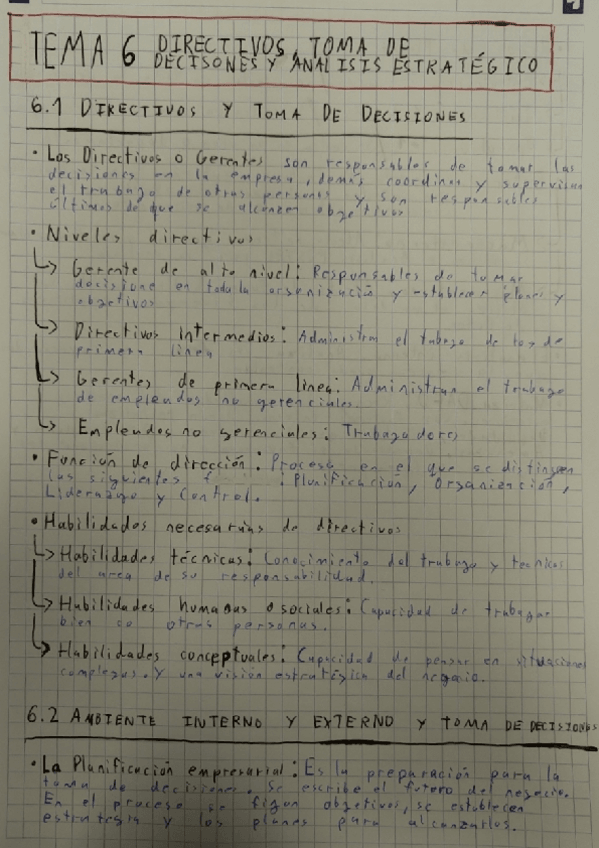 TEMA 6 DIRECTIVOS, TOMA DE
DECISONES Y ANALISIS ESTRATÉGICO
6.1 DIRECTIVOS Y TOMA DE DECISIONES
• Los Directivos o Gerentes son responsables de tomar las
decisiones en la empresa, demás coordinan y supervisan
el trabajo de otras personas y son responsables
últimos de que se alcancen objetivos
• Niveles directivos
↳ Gerente de alto nivel: Responsables de tomar
decisione en toda la organización y establecer planes y
objetivos
↳ Directivos intermedios: Administran el trabajo de los de
primera linea
↳ Gerentes de primera linea: Administran el trabajo
de empleados no gerenciales.
↳ Empleados no gerenciales: Trabajadores
• Función de dirección: Proceso en el que se distinguen
las siguientes f : Planificación, Organización,
Liderazgo y Control.
• Habilidades necesarias de directivos
↳ Habilidades técnicas: Conocimiento del trabajo y tecnicas
del area de su responsabilidad.
↳ Habilidades humanas o sociales: Capacidad de trabajar
bien co otras personas.
↳ Habilidades conceptuales: Capacidad de pensar en situaciones
complejas. Y una visión estratégica del negocio.
6.2 AMBIENTE INTERNO Y EXTERNO Y TOMA DE DECISIONES
• La Planificación empresarial: Es la preparación para la
toma de decisiones. Se escribe el futuro del negocio.
En el proceso se fijan objetivos, se establecen
estrategia y los planes para alcanzarlos.